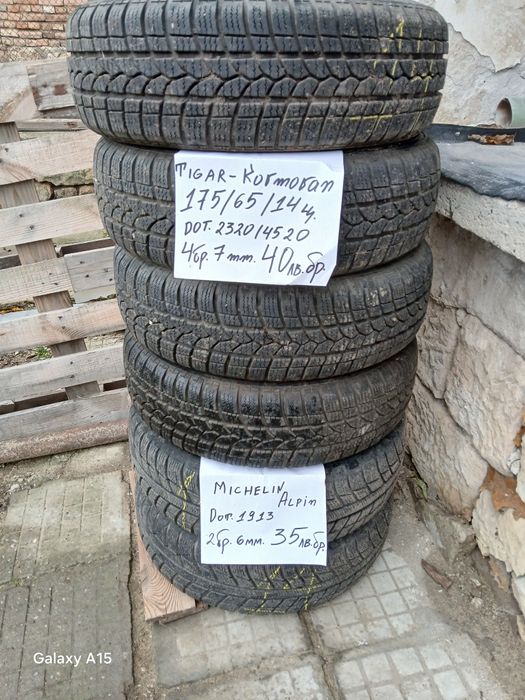 TIGAR-Kormoran
175/65/14ц.
DOT. 2320/4520
4бр. 7mm. 40лв.бр.
MICHELIN
Alpin
Dот. 1913
2бр. 6мм. 35лв.бр.
Galaxy A15